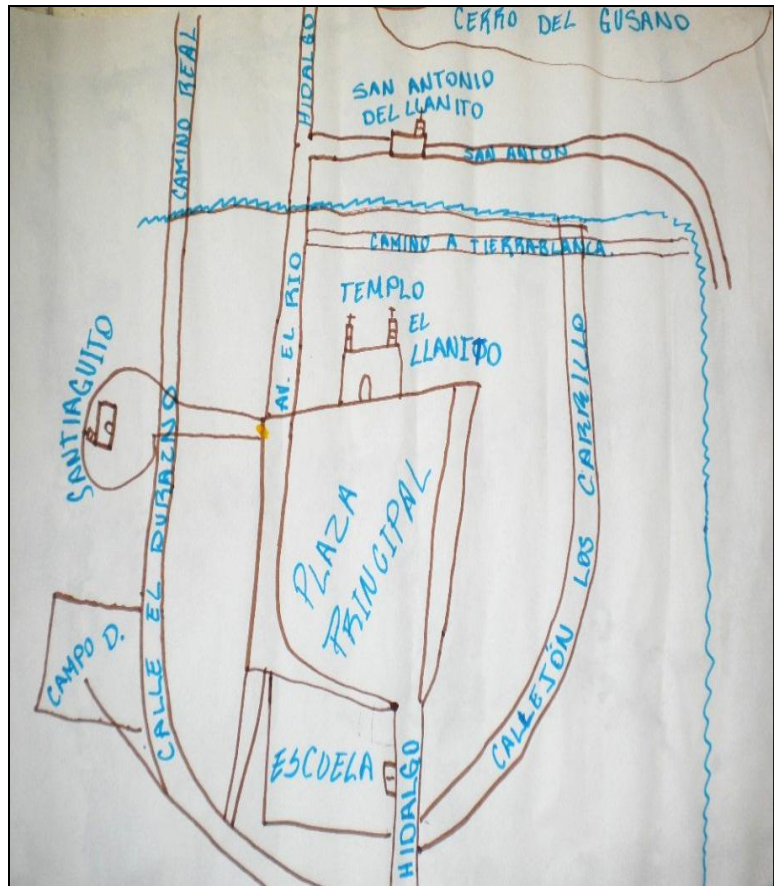 CERRO DEL GUSANO
CAMINO REAL
HIDALGO
SAN ANTONIO
DEL LLANITO
SAN ANTON
CAMINO A TIERRABLANCA.
AV. EL RIO
TEMPLO
EL
LLANITO
SANTIAGUITO
CALLE EL DURAZNO
PLAZA
PRINCIPAL
CALLEJÓN LOS CARRILLO
CAMPO D.
ESCUELA
HIDALGO